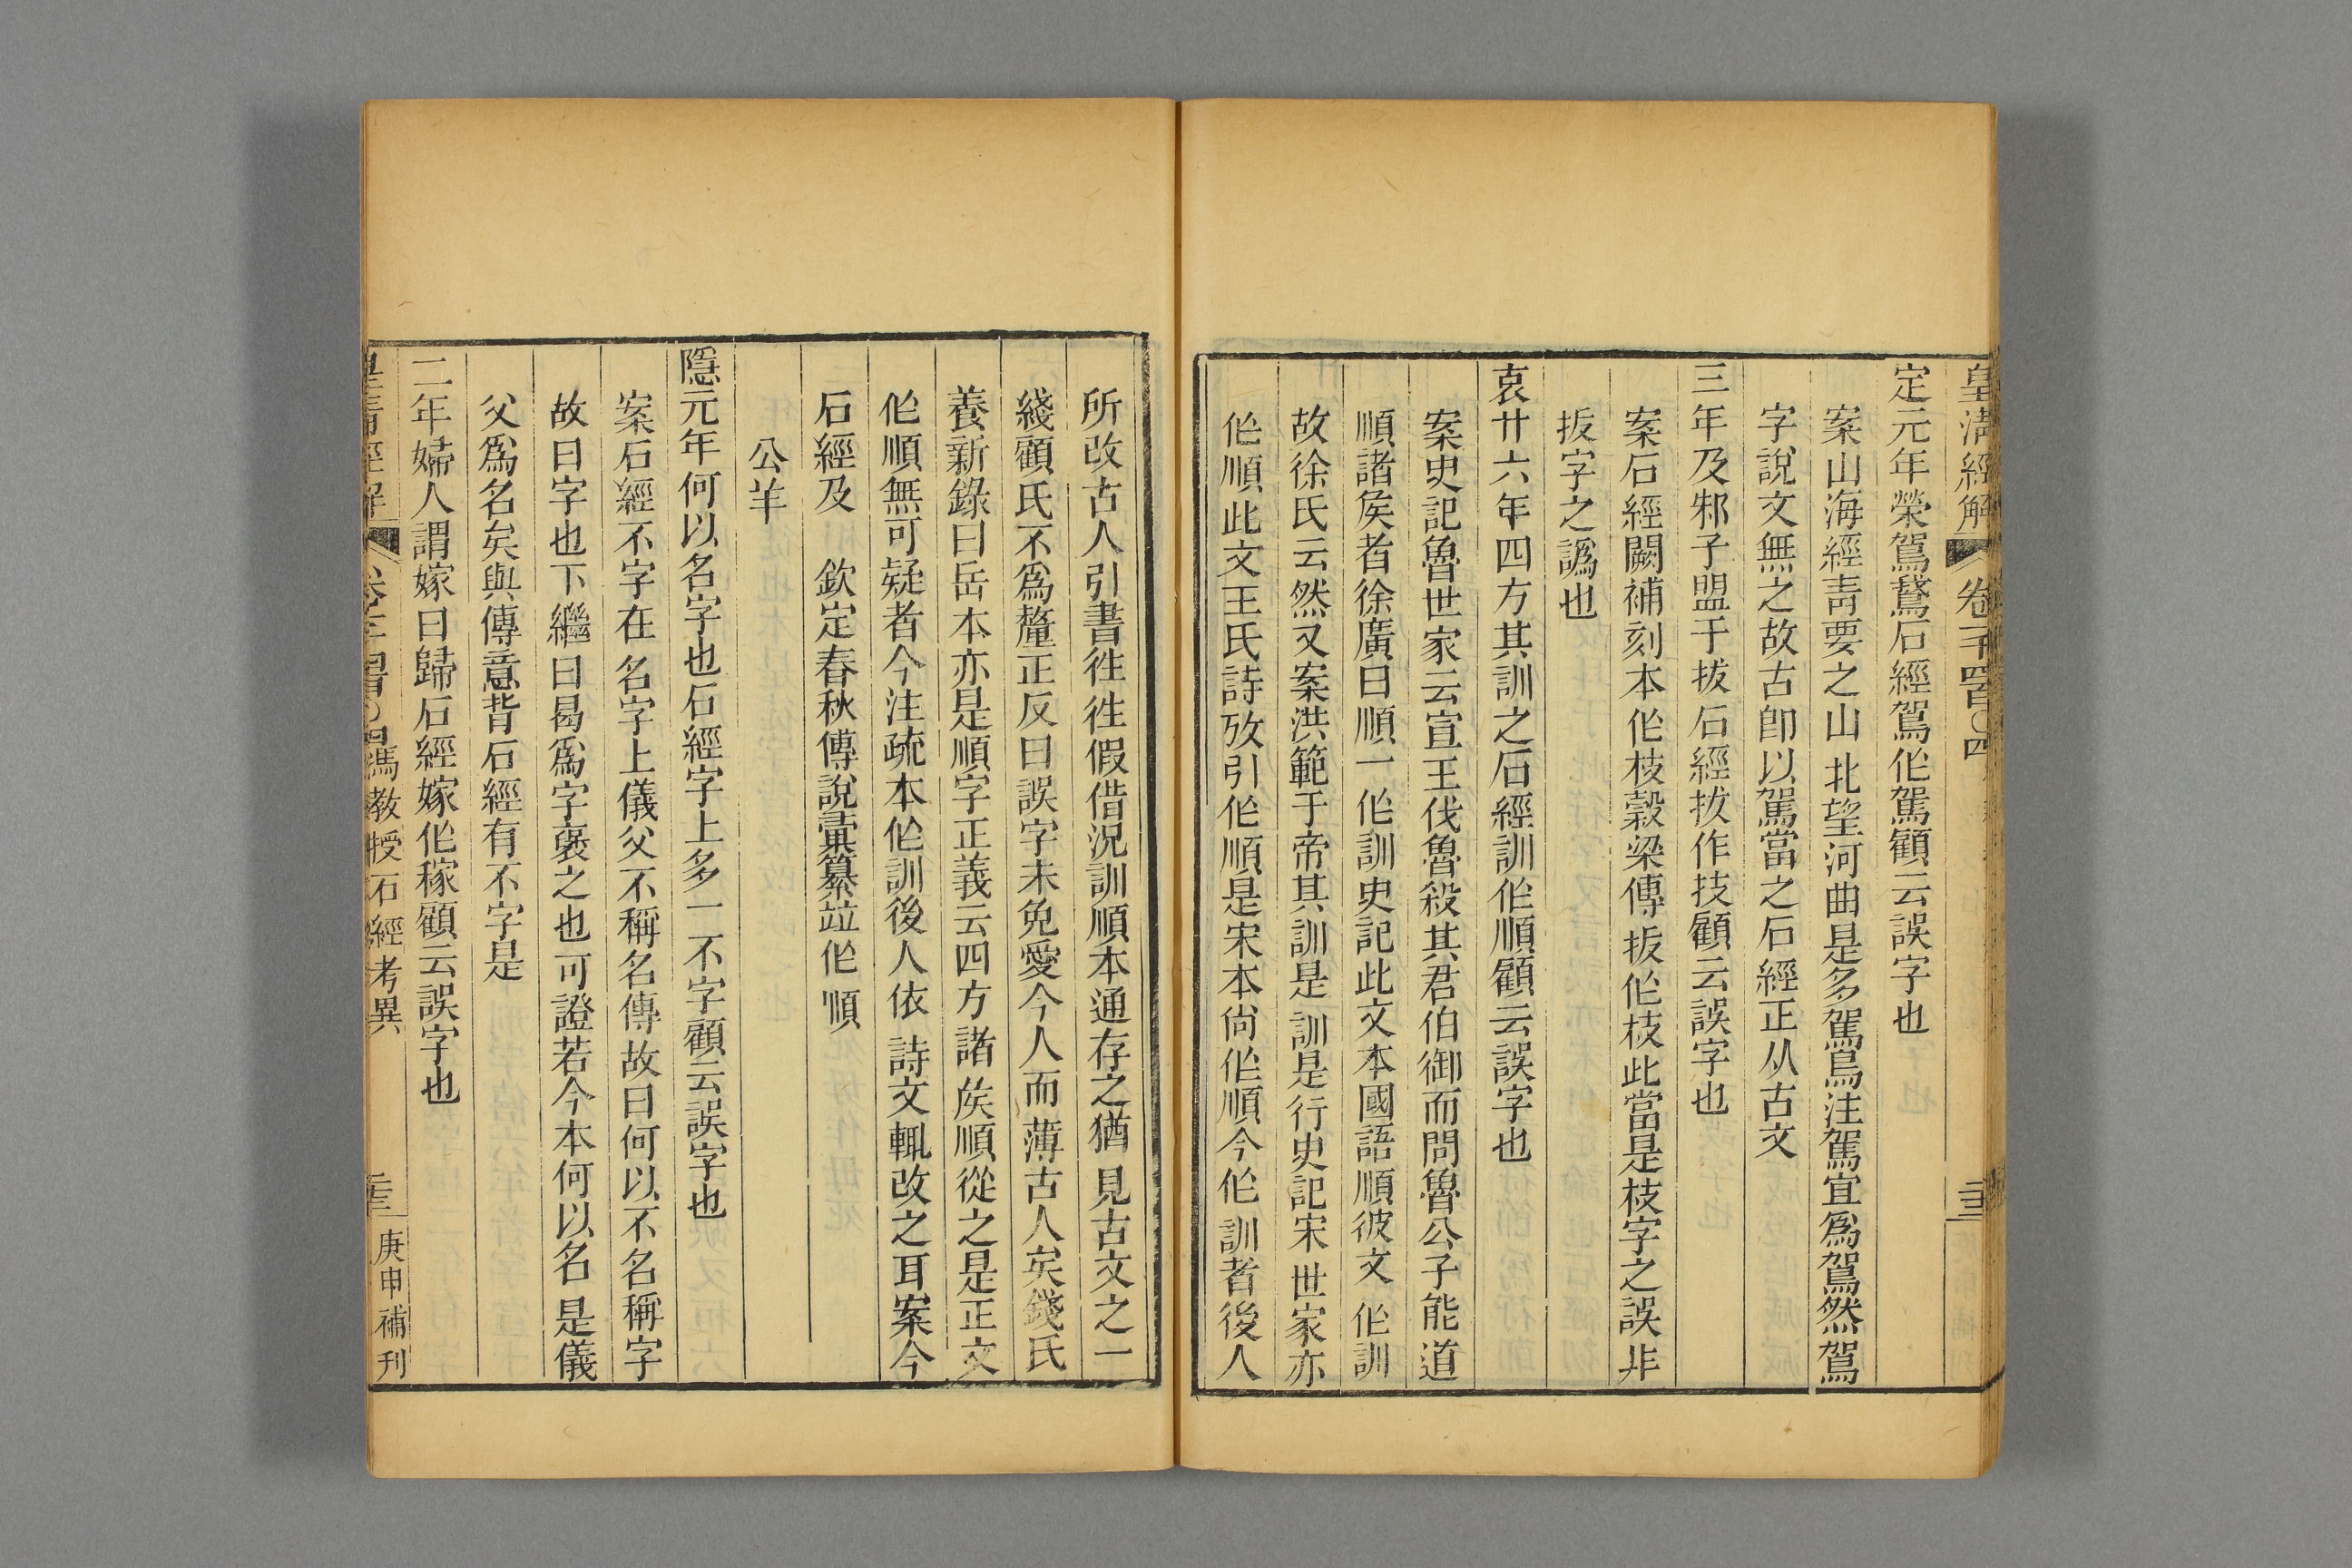 皇清經解
卷一千四百〇四
二十三
定元年榮駕鵞石經駕作駕顧云誤字也
案山海經靑要之山北望河曲是多駕鳥注駕宜爲鴐然鴐
字說文無之故古卽以駕當之石經正从古文
三年及邾子盟于拔石經拔作技顧云誤字也
案石經闕補刻本作枝穀梁傳拔作枝此當是枝字之誤非
拔字之譌也
哀廿六年四方其訓之石經訓作順顧云誤字也
案史記魯世家云宣王伐魯殺其君伯御而問魯公子能道
順諸矦者徐廣曰順一作訓史記此文本國語順彼文作訓
故徐氏云然又案洪範于帝其訓是訓是行史記宋世家亦
作順此文王氏詩攷引作順是宋本尙作順今作訓者後人
所改古人引書徃徃假借況訓順本通存之猶見古文之一
綫顧氏不爲釐正反曰誤字未免愛今人而薄古人矣錢氏
養新錄曰岳本亦是順字正義云四方諸矦順從之是正文
作順無可疑者今注疏本作訓後人依詩文輒改之耳案今
石經及　欽定春秋傳說彙纂竝作順
公羊
隱元年何以名字也石經字上多一不字顧云誤字也
案石經不字在名字上儀父不稱名傳故曰何以不名稱字
故曰字也下繼曰曷爲字褒之也可證若今本何以名是儀
父爲名矣與傳意背石經有不字是
二年婦人謂嫁曰歸石經嫁作稼顧云誤字也
皇清經解
卷一千四百〇四
馮教授石經考異
二十三
庚申補刊